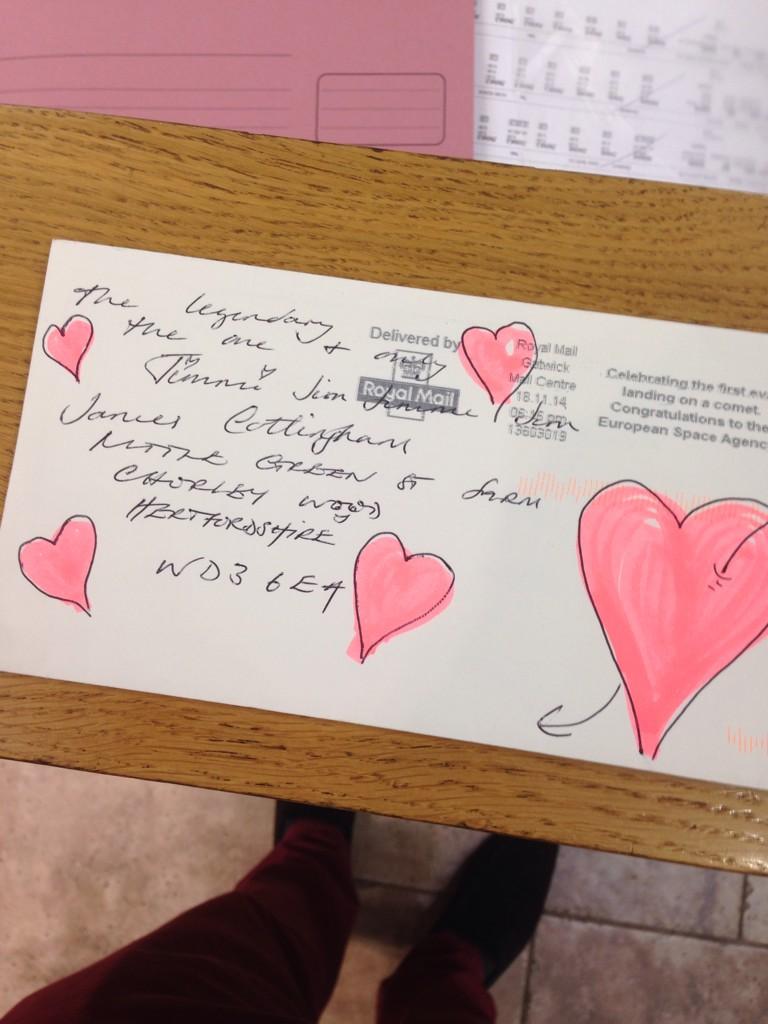 the legendary
the one & only
Timmi Jim Jimmie Jim
James Cottingham
LITTLE GREEN ST FARM
CHORLEY WOOD
HERTFORDSHIRE
WD3 6EA
Delivered by
Royal Mail
Royal Mail
Gatwick
Mail Centre
18.11.14
13603019
Celebrating the first eve
landing on a comet.
Congratulations to the
European Space Agenc